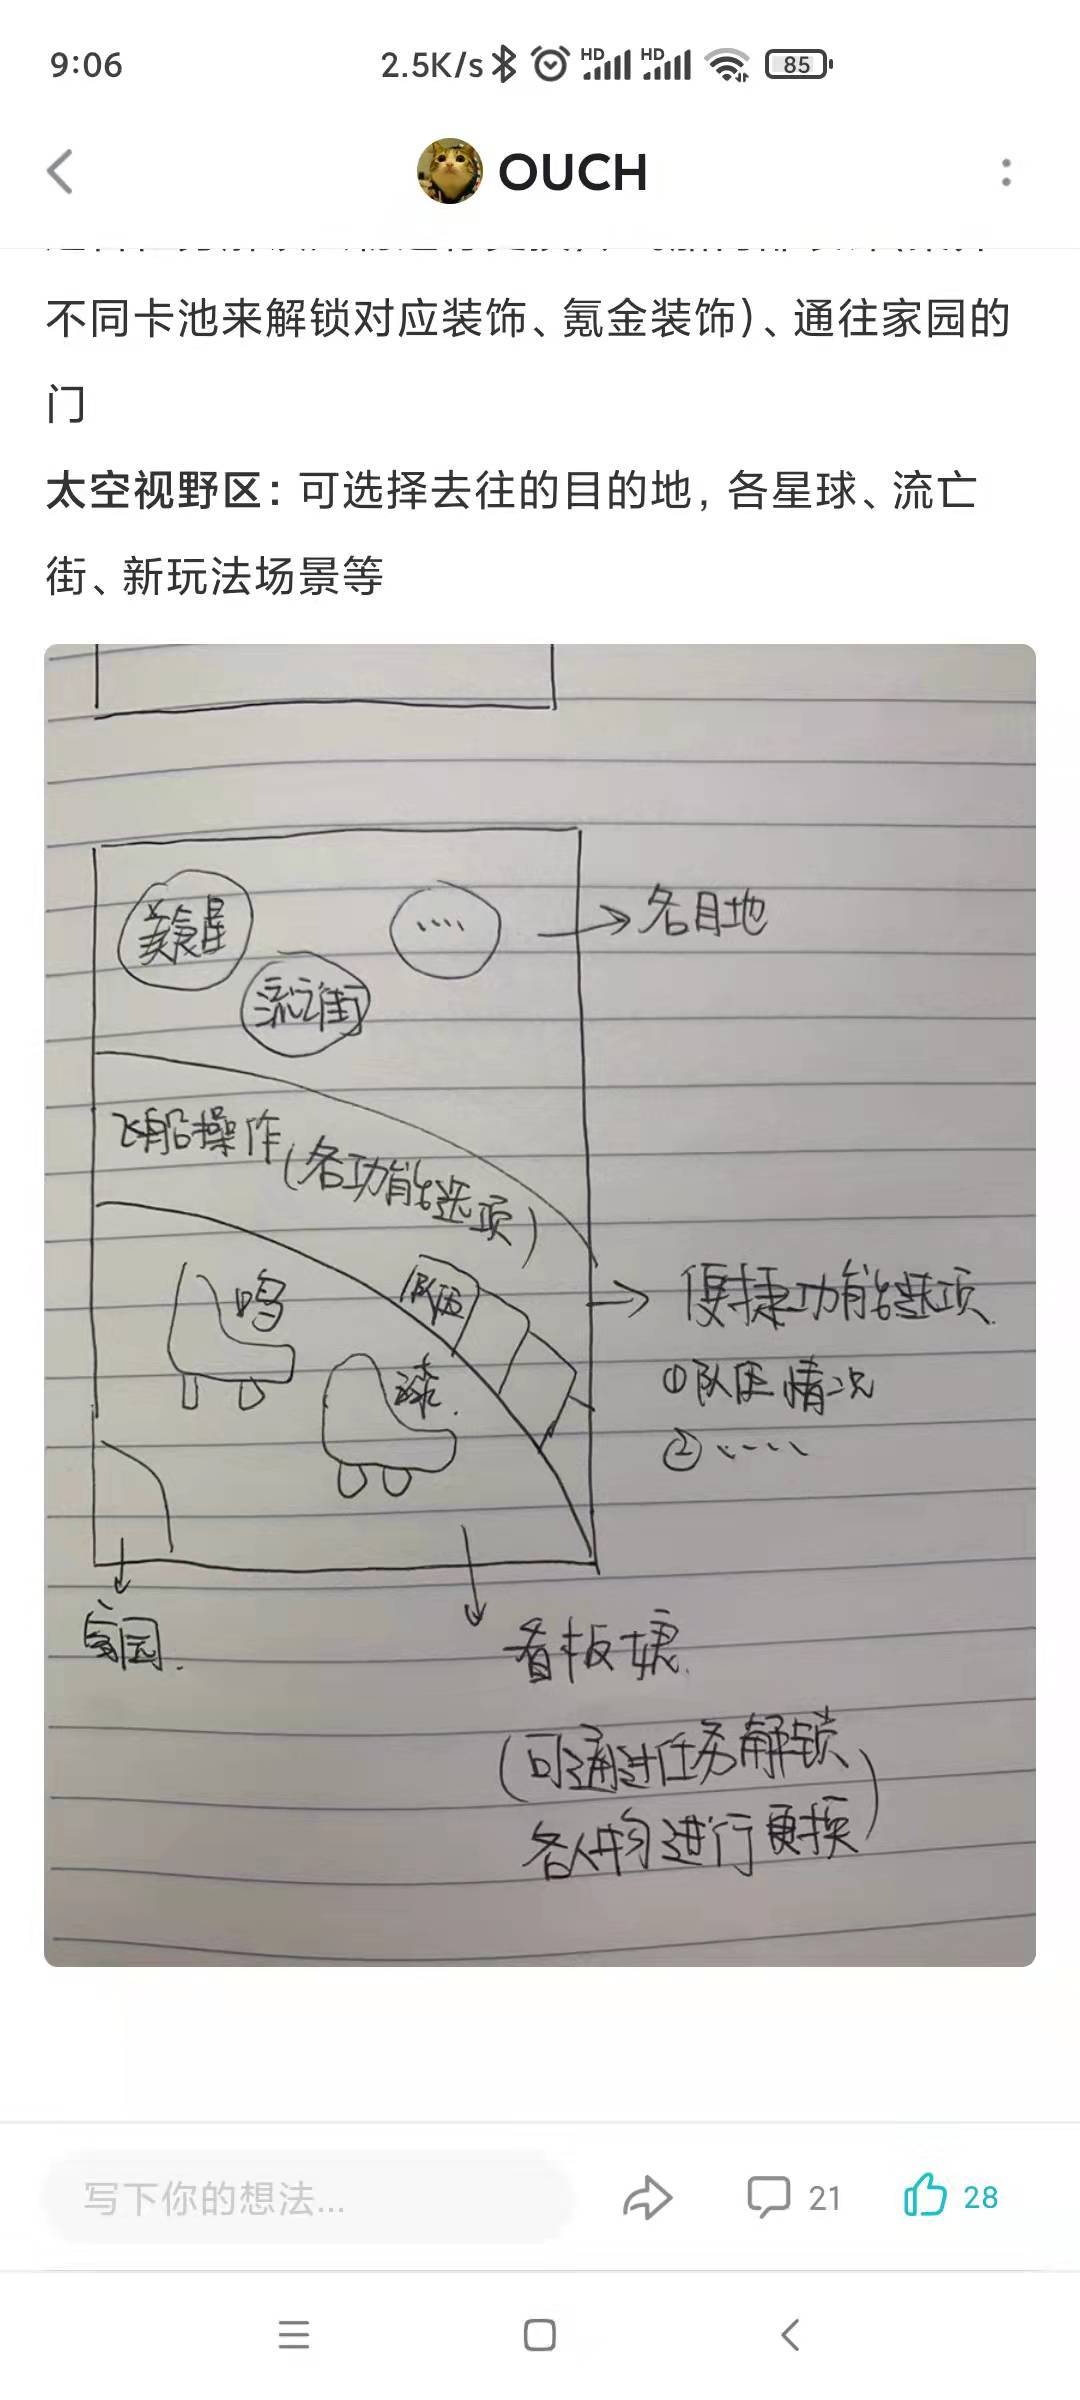 9:06
2.5K/s HD HD 85
OUCH
不同卡池来解锁对应装饰、氪金装饰)、通往家园的
门
太空视野区：可选择去往的目的地，各星球、流亡
街、新玩法场景等
美食星
....
→各目地
流亡街
飞船操作(各功能选项)
鸣
队伍
→便捷功能选项
漆.
①队伍情况
②····
家园.
看板娘.
(可通过任务解锁
各人物进行更换)
写下你的想法...
21
28